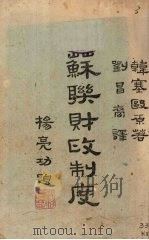 韓塞原著
劉昌裔譯
蘇聯財政制度
楊亮功題